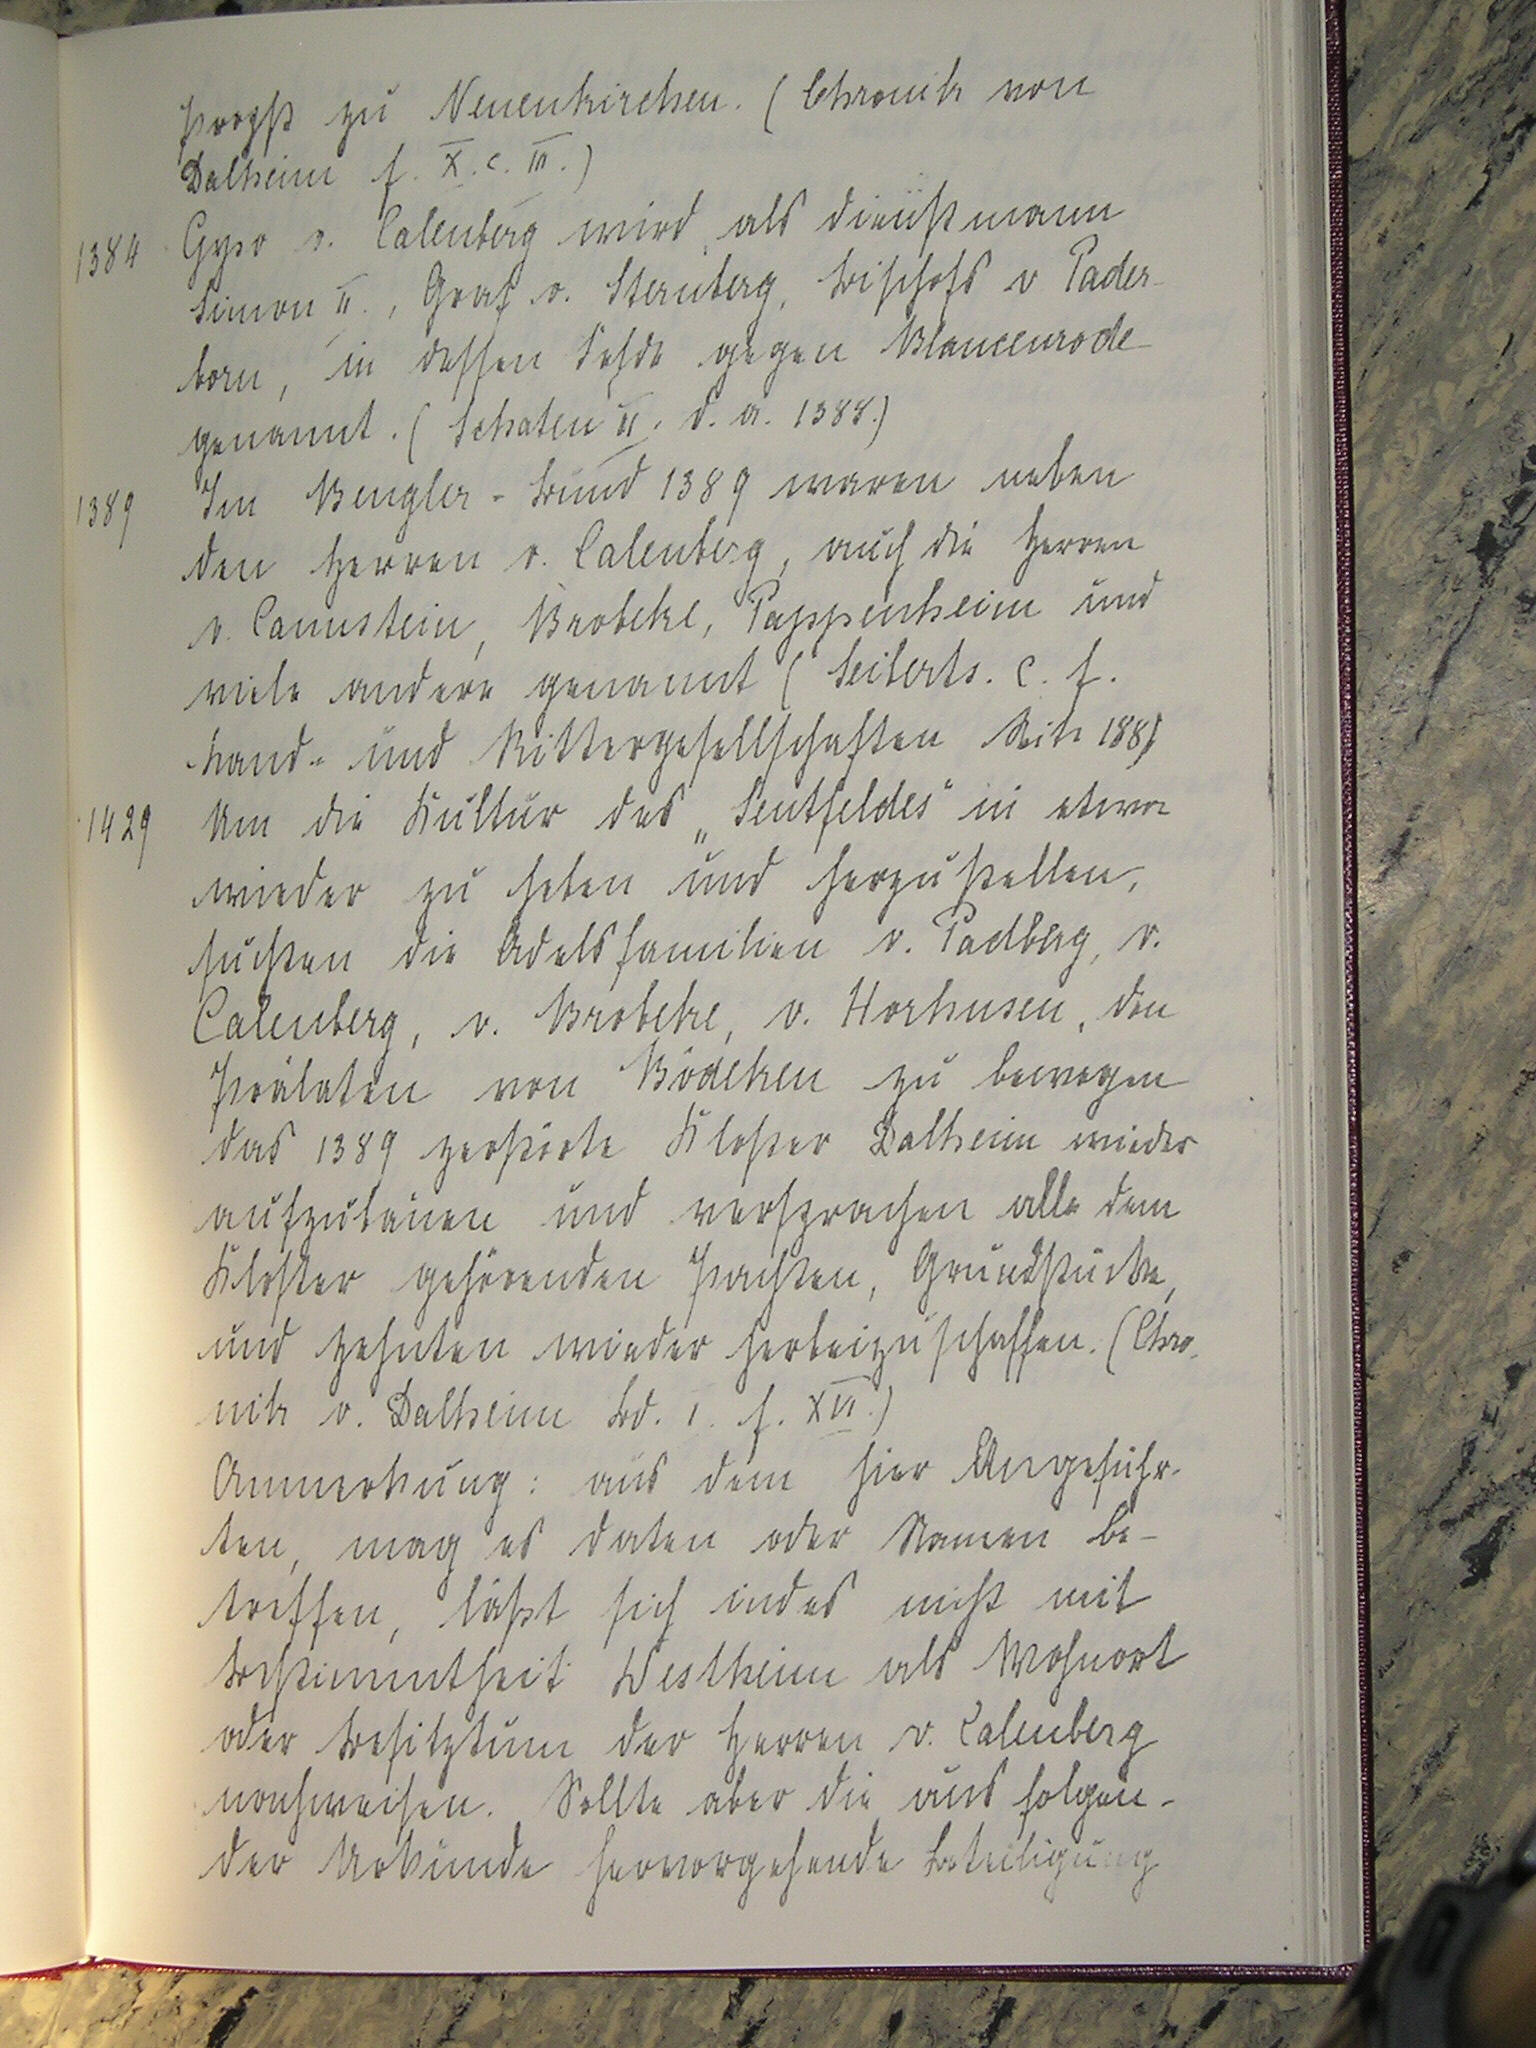 Propst zu Neuenkirchen. (Chronik von
Dalheim f. X. c. III.)
1384 Gypo v. Calenberg wird als Dienstmann
Simon II., Graf v. Sternberg, Bischofs v Pader-
born, in dessen Fehde gegen Blancenrode
genannt. (Schaten II. d. a. 1388.)
1389 Im Bengler-Bund 1389 waren neben
den Herren v. Calenberg, auch die Herren
v. Cannstein, Brobeke, Pappenheim und
viele andere genannt (Seiberts. c. f.
Land- und Rittergesellschaften Seite 188)
1429 Um die Kultur des „Sentfeldes" in etwa
wieder zu heben und herzustellen,
suchten die Adelsfamilien v. Padberg, v.
Calenberg, v. Brobeke, v. Horhusen, den
Prälaten von Bödeken zu bewegen
das 1389 zerstörte Kloster Dalheim wieder
aufzubauen und versprachen alle dem
Kloster gehörenden Pachten, Grundstücke,
und Zehnten wieder herbeizuschaffen. (Chro-
nik v. Dalheim Bd. I. f. XVI.)
Anmerkung: aus dem hier Angeführ-
ten, mag es Daten oder Namen be-
treffen, läßt sich indes nicht mit
Bestimmtheit Westheim als Wohnort
oder Besitztum der Herren v. Calenberg
nachweisen. Sollte aber die aus folgen-
der Urkunde hervorgehende Beteiligung